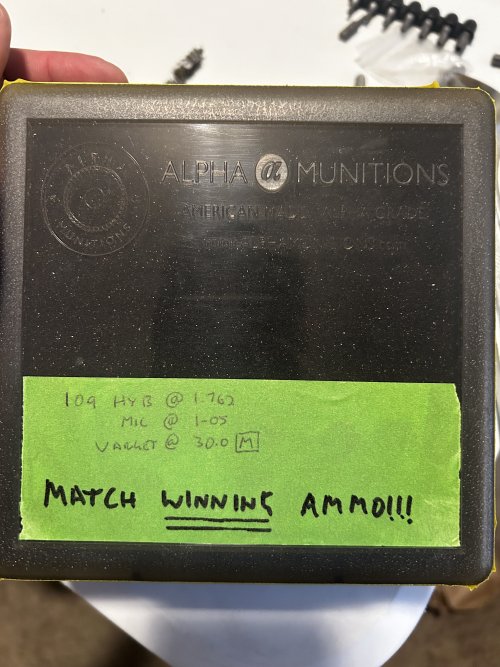 ALPHA
MUNITIONS
ALPHA a MUNITIONS
AMERICAN MADE. ALPHA GRADE.
109 HYB @ 1.762
MIC @ 1-05
VARGET @ 30.0 M
MATCH WINNING AMMO!!!